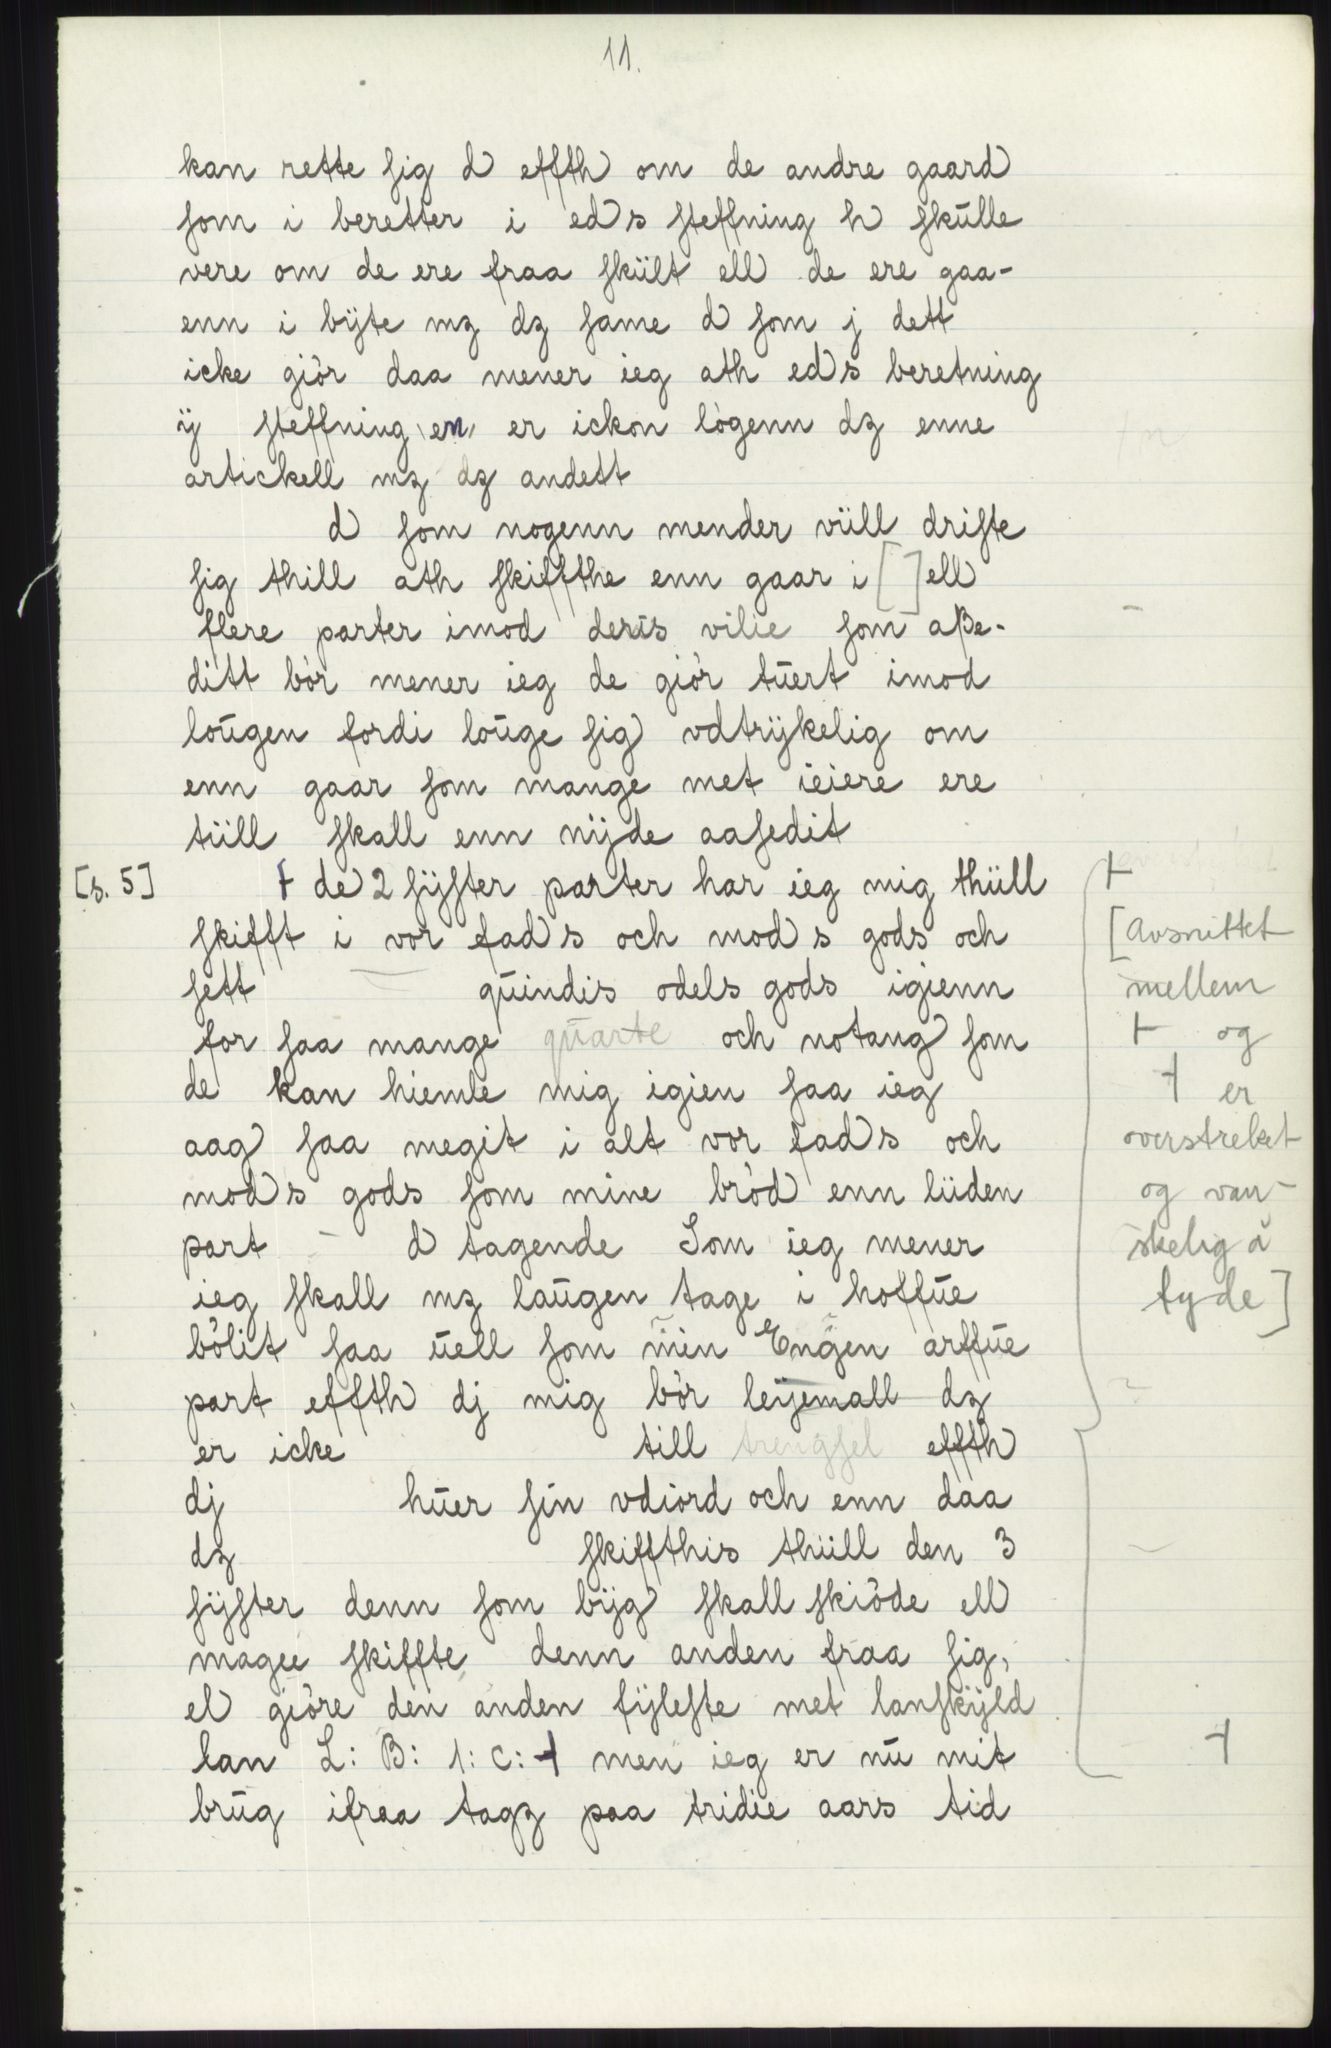 11.
kan rette sig d effth om de andre gaard
som i beretter i eds steffning h skulle
vere om de ere fraa skült ell de ere gaa-
enn i bÿte mz dz same d som j dett
icke giör daa mener ieg ath eds beretning
ÿ steffning en er ickon lögenn dz enne
artickell mz dz andett
d som nogenn mender vüll driste
sig thill ath skiffthe enn gaar i [ ] ell
flere parter imod deris vilie som aße-
ditt bör mener ieg de giör tuert imod
lougen fordi louge sig vdtrÿkelig om
enn gaar som mange met ieiere ere
tüll skall enn nÿde aasedit
[s. 5] + de 2 sÿster parter har ieg mig thüll
skifft i vor fads och mods gods och
sett quindis odels gods igienn
for saa mange quarte och notang som
de kan hiemle mig igien saa ieg
aag saa megit i alt vor fads och
mods gods som mine bröd enn lüden
part - d tagende Som ieg mener
ieg skall mz laugen tage i hoffue
bölit saa uell som min Engen arffue
part effth dj mig bör leÿemall dz
er icke till trengsel effth
dj huer sin vdiord och enn daa
dz skiffthis thüll den 3
sÿster denn som bÿg skall skiöde ell
magee skiffte denn anden fraa sig,
el giöre den anden fÿleste met lanskÿld
lan L: B: 1: c: + men ieg er nu mit
brug ifraa tagz paa tridie aars tid
+
[Avsnittet
mellem
+ og
+ er
overstreket
og van-
skelig å
tyde]
+